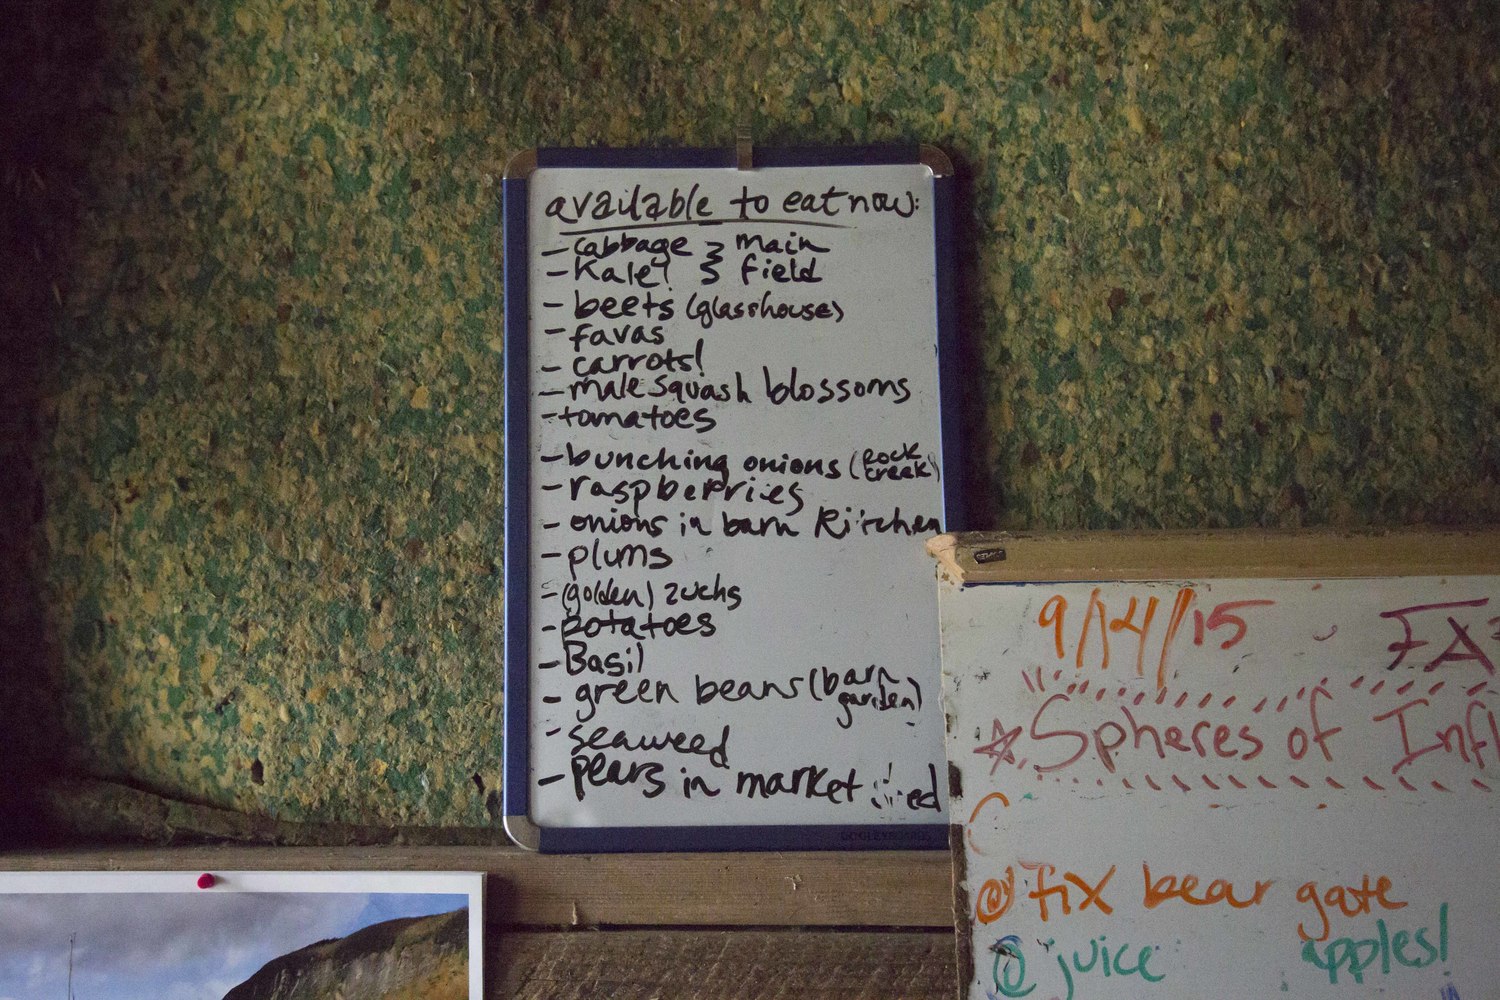 available to eat now:
- cabbage } main
- Kale! } field
- beets (glasshouse)
- favas
- carrots!
- male squash blossoms
- tomatoes
- bunching onions (rock creek)
- raspberries
- onions in barn Kitchen
- plums
- (golden) zuchs
- potatoes
- Basil
- green beans (barn garden)
- seaweed
- pears in market
9/14/15 FA
☆ Spheres of Infl
@ Fix bear gate
@ juice apples!